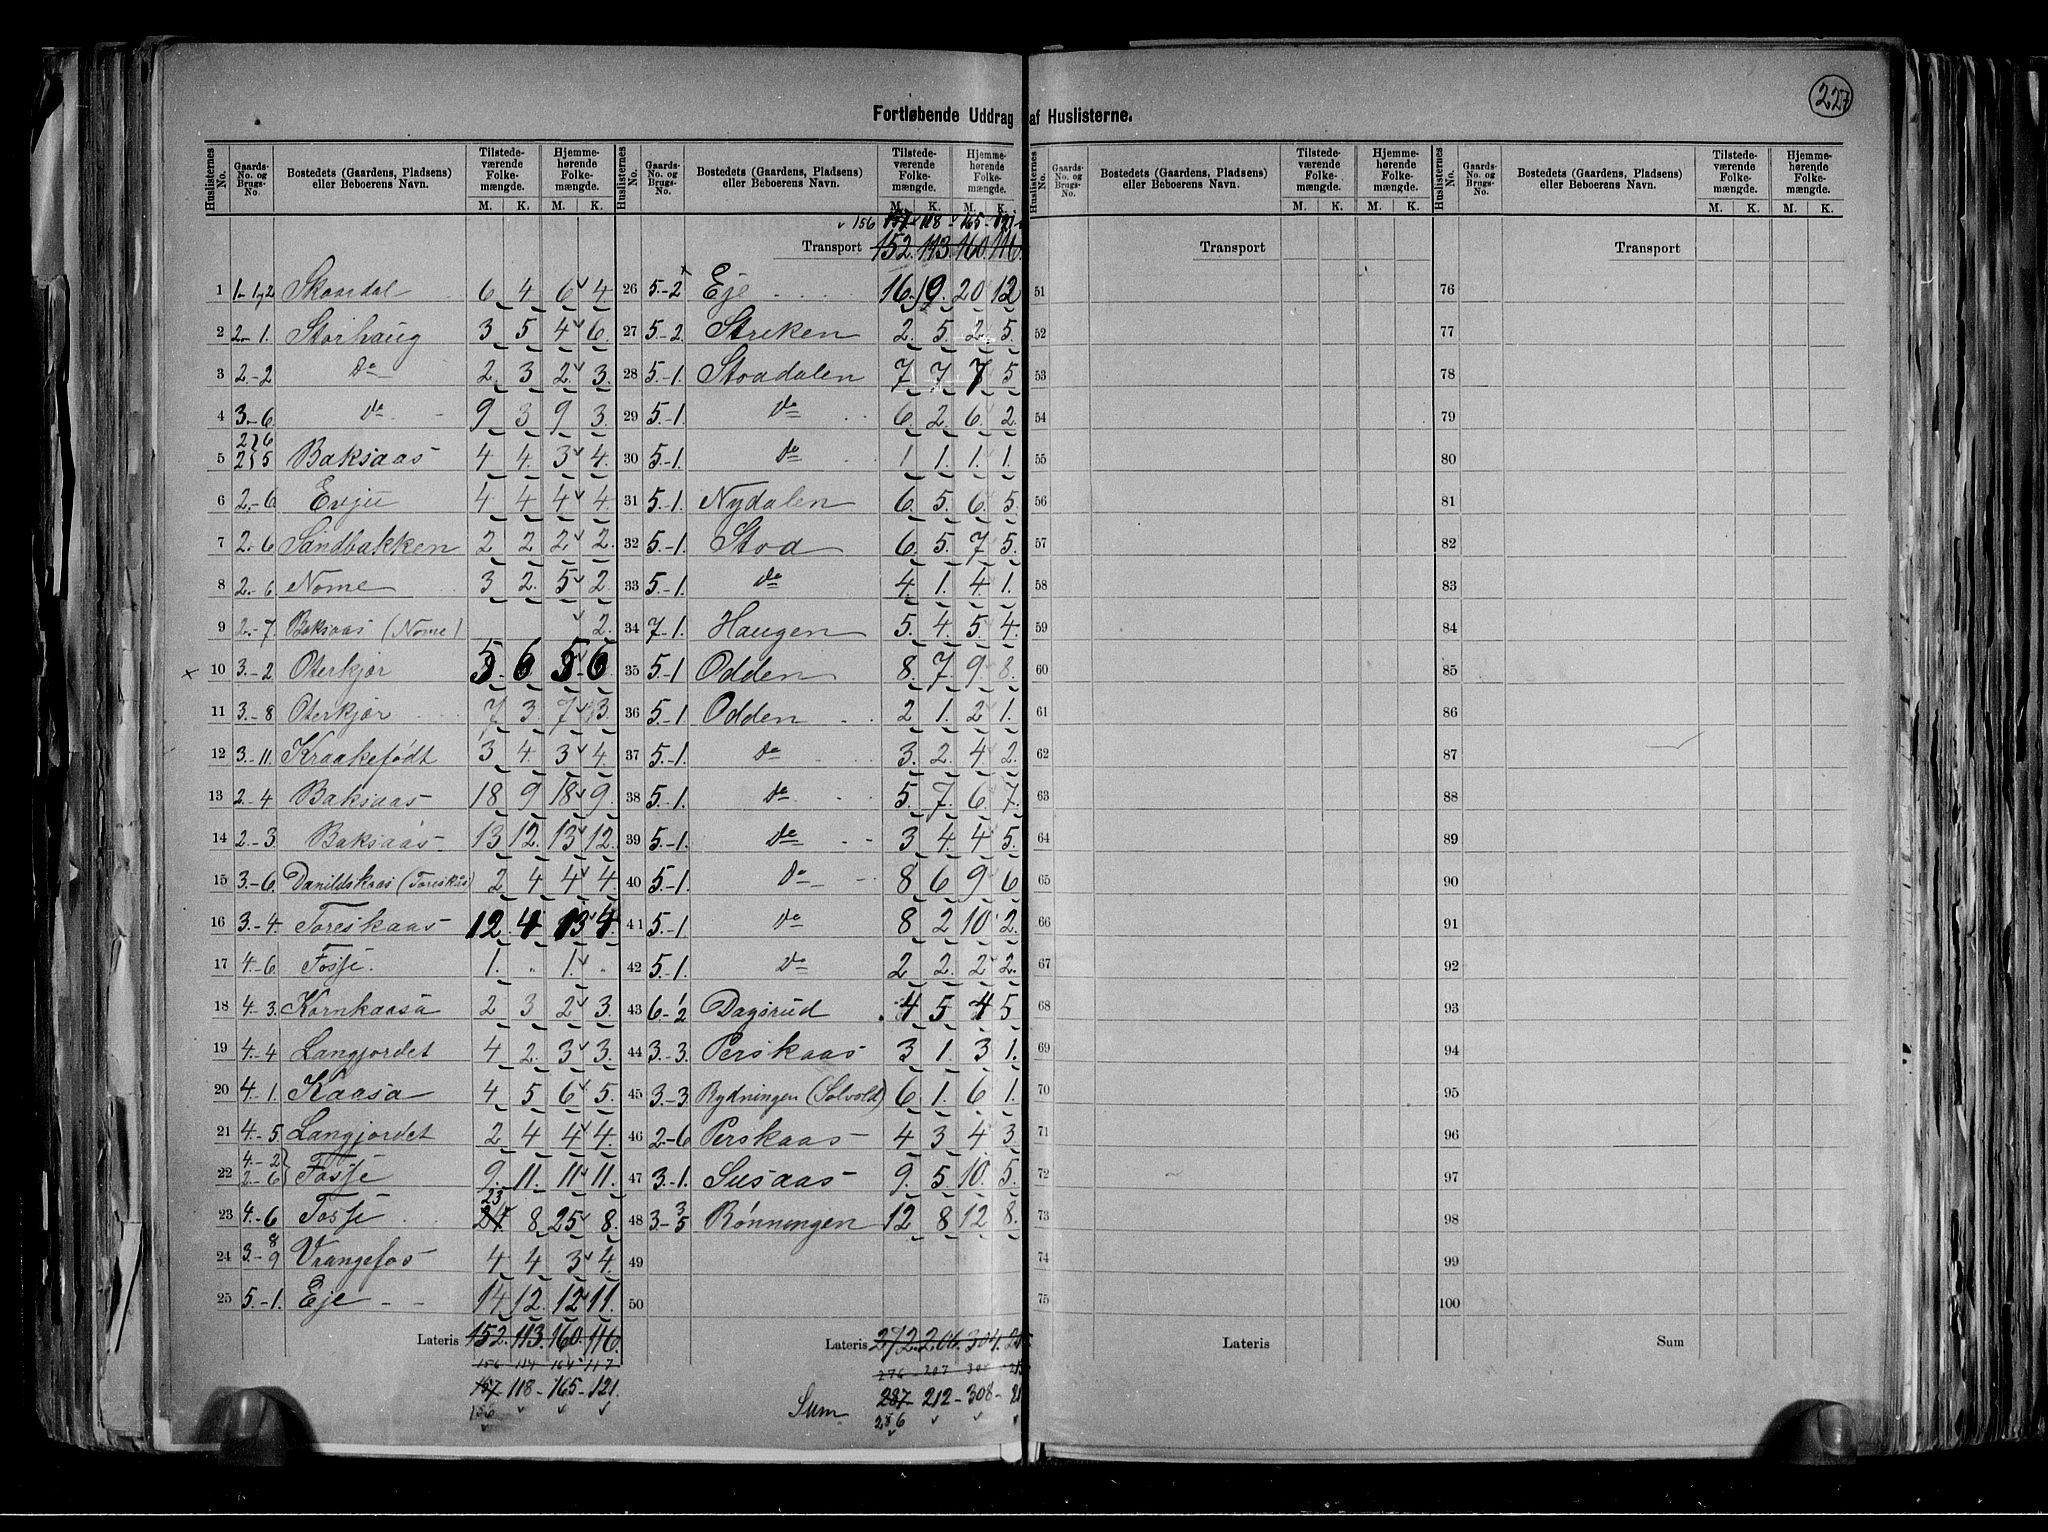 227
Fortløbende Uddrag af Huslisterne.
Huslisternes No. Gaards-No. og Brugs-No. Bostedets (Gaardens, Pladsens) eller Beboerens Navn. Tilstedeværende Folkemængde. M. K. Hjemmehørende Folkemængde. M. K.
Huslisternes No. Gaards-No. og Brugs-No. Bostedets (Gaardens, Pladsens) eller Beboerens Navn. Tilstedeværende Folkemængde. M. K. Hjemmehørende Folkemængde. M. K.
Huslisternes No. Gaards-No. og Brugs-No. Bostedets (Gaardens, Pladsens) eller Beboerens Navn. Tilstedeværende Folkemængde. M. K. Hjemmehørende Folkemængde. M. K.
Huslisternes No. Gaards-No. og Brugs-No. Bostedets (Gaardens, Pladsens) eller Beboerens Navn. Tilstedeværende Folkemængde. M. K. Hjemmehørende Folkemængde. M. K.
1 1-1,2 Skaardal 6 4 6 4
2 2-1. Storhaug 3 5 4 6.
3 2-2 Do 2 3 2 3.
4 3-6. Do 9 3 9 3.
5 2}6 2}5 Baksaas 4 4. 3 4.
6 2-6 Evju 4 4 4 4.
7 2-6 Sandbakken 2 2 2 2.
8 2-6 Nome 3 2. 5 2.
9 2-7. Baksaas (Nome) 2.
x 10 3-2 Oterkjær 5 6 5 6
11 3-8 Oterkjær 7 3. 7 3.
12 3-11. Kraakefødt 3 4. 3 4.
13 2-4 Baksaas 18 9 18 9.
14 2-3 Baksaas 13 12. 13 12.
15 3-6. Danildskaas (Toreskås) 2 4 4 4.
16 3-4. Toreskaas 12 4 13 4.
17 4-6. Fosse. 1. " 1. "
18 4-3. Kornkaasa 2 3 2 3.
19 4-4 Langjordet 4 2. 3 3.
20 4-1. Kaasa 4 5 6 5.
21 4-5. Langjordet 2 4 4 4.
22 4-2 2-6 } Fosse 9. 11. 11 11.
23 4-6 Fosse 24 23 8 25 8.
24 3-8 9 Vrangefos 4 4 3 4.
25 5-1. Eje 14 12. 12 11.
Lateris 152. 113. 160. 116.
156 114 164 117
157 118- 165- 121.
156
156 157 118 165 121
Transport 152. 113. 160. 116.
26 5-2 Eje 16. 19. 20 12
27 5-2. Streken 2. 5. 2. 5.
28 5-1. Stoadalen 7 7 7 5
29 5-1. Do 6. 2. 6. 2.
30 5-1. Do 1 1. 1. 1.
31 5-1. Nydalen 6. 5. 6. 5.
32 5-1. Stoa 6. 5. 7. 5.
33 5-1. Do 4. 1. 4. 1.
34 7-1. Haugen 5. 4. 5. 4.
35 5-1 Odden 8. 7. 9. 8.
36 5-1. Odden 2 1. 2 1.
37 5-1. Do 3. 2. 4. 2.
38 5-1. Do 5. 7. 6. 7.
39 5-1. Do 3 4. 4 5.
40 5-1. Do 8 6 9 6
41 5-1 Do 8 2 10 2.
42 5-1. Do 2 2. 2 2.
43 6-1 2 Dagsrud 4 5 4 5
44 3-3. Perskaas 3 1. 3 1.
45 3-3 Rydningen (Solvold) 6 1. 6 1.
46 2-6 Perskaas 4 3 4 3
47 3-1. Susaas 9. 5. 10. 5.
48 3-3 5 Rønningen 12 8 12 8.
49
50
Lateris 272. 206. 304.
276 207 308
Sum 287 212- 308-
286
Transport
51
52
53
54
55
56
57
58
59
60
61
62
63
64
65
66
67
68
69
70
71
72
73
74
75
Lateris
Transport
76
77
78
79
80
81
82
83
84
85
86
87
88
89
90
91
92
93
94
95
96
97
98
99
100
Sum